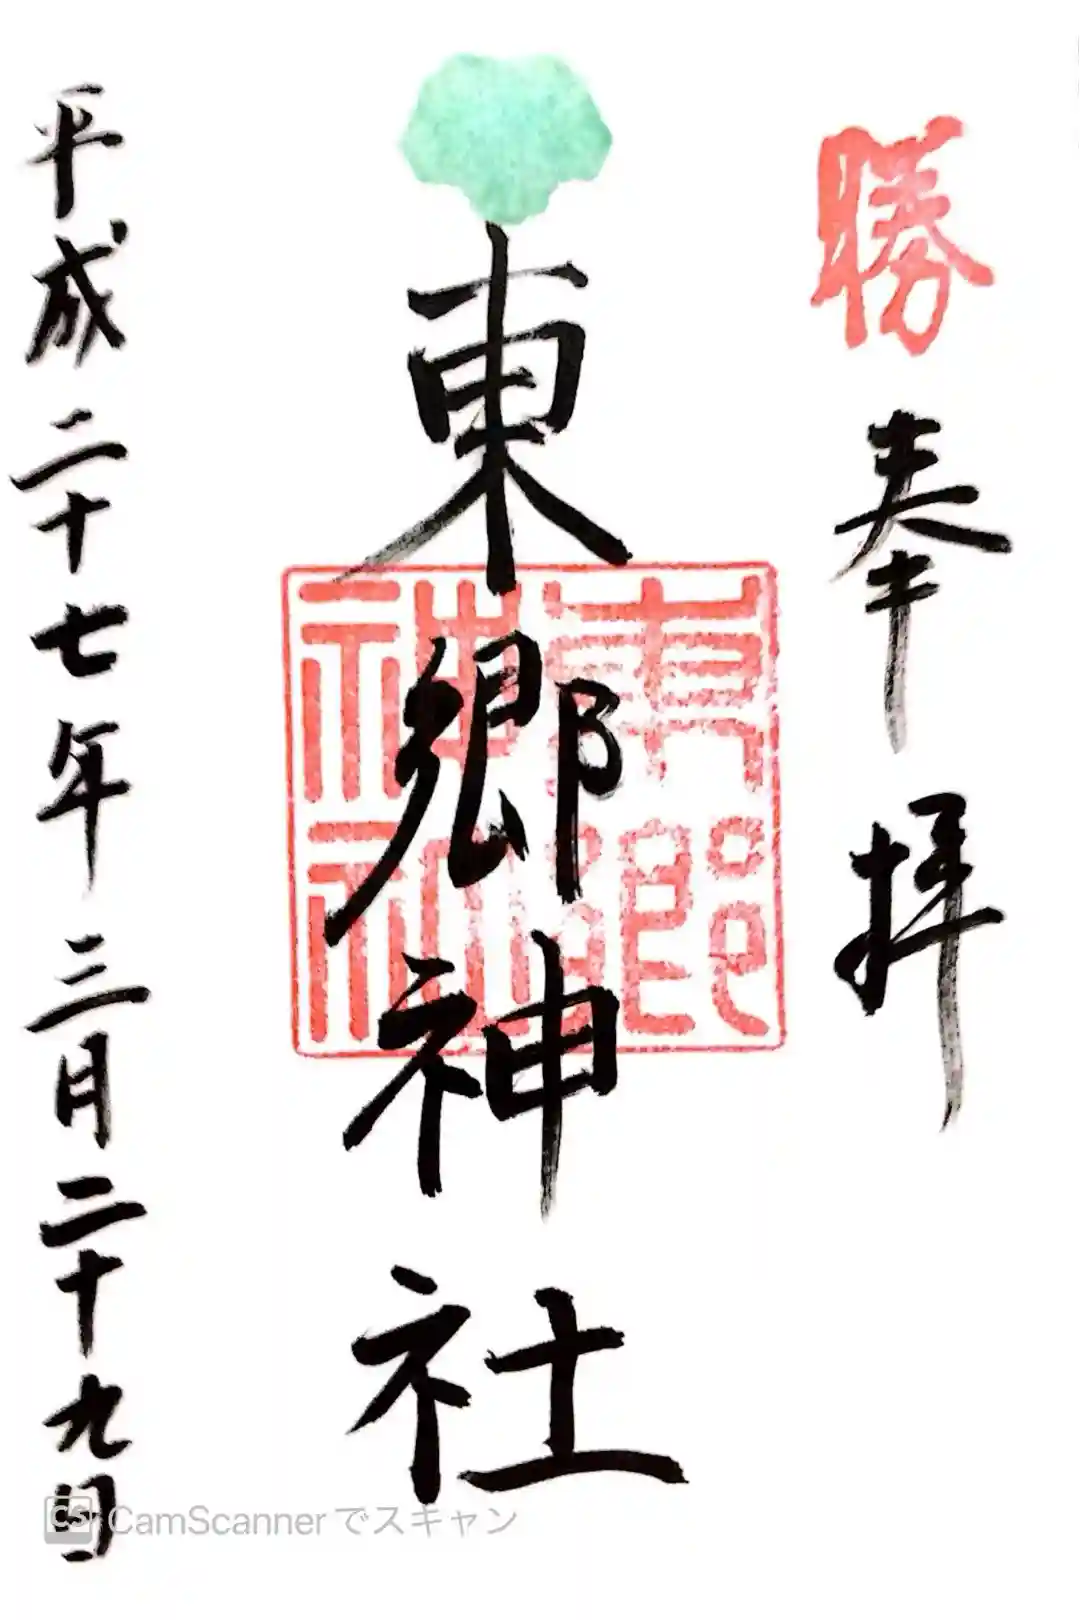 勝
奉拝
東郷神社
東郷神社
平成二十七年三月二十九日
CS CamScannerでスキャン